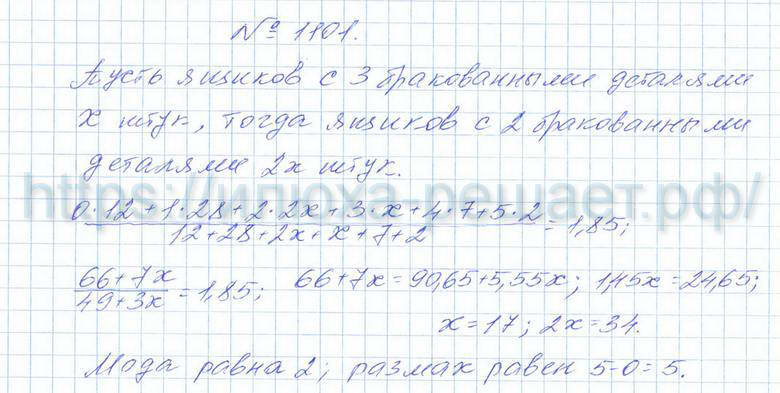 № 1101.
Пусть ящиков с 3 бракованными деталями
x штук, тогда ящиков с 2 бракованными
деталями 2x штук.
https://илюха.решает.рф/
0·12+1·28+2·2x+3·x+4·7+5·2
12+28+2x+x+7+2 = 1,85;
66+7x / 49+3x = 1,85; 66+7x=90,65+5,55x; 1,45x=24,65;
x=17; 2x=34.
Мода равна 2; размах равен 5-0=5.